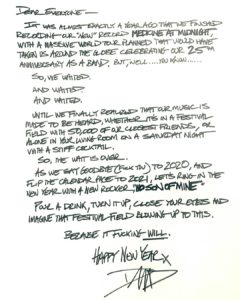 DEAR EVERYONE —
IT WAS ALMOST EXACTLY A YEAR AGO THAT WE FINISHED
RECORDING OUR "NEW" RECORD MEDICINE AT MIDNIGHT,
WITH A MASSIVE WORLD TOUR PLANNED THAT WOULD HAVE
TAKEN US AROUND THE GLOBE CELEBRATING OUR 25TH
ANNIVERSARY AS A BAND. BUT, WELL.....YOU KNOW......
SO, WE WAITED.
AND WAITED.
AND WAITED.
UNTIL WE FINALLY REALIZED THAT OUR MUSIC IS
MADE TO BE HEARD, WHETHER IT'S IN A FESTIVAL
FIELD WITH 50,000 OF OUR CLOSEST FRIENDS, OR
ALONE IN YOUR LIVING ROOM ON A SATURDAY NIGHT
WITH A STIFF COCKTAIL.
SO, THE WAIT IS OVER.
AS WE SAY GOODBYE TO 2020, AND
FLIP THE CALENDAR PAGE TO 2021, LET'S RING IN THE
NEW YEAR WITH A NEW ROCKER "NO SON OF MINE"
POUR A DRINK, TURN IT UP, CLOSE YOUR EYES AND
IMAGINE THAT FESTIVAL FIELD BLOWING UP TO THIS.
BECAUSE IT FUCKING WILL.
HAPPY NEW YEAR X